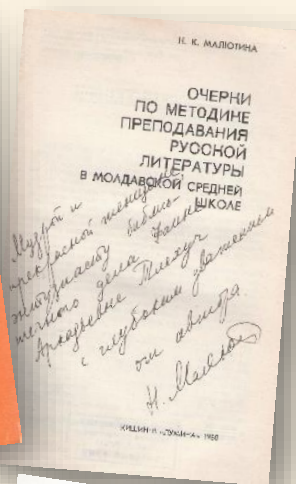 Н. К. МАЛЮТИНА
ОЧЕРКИ
ПО МЕТОДИКЕ
ПРЕПОДАВАНИЯ
РУССКОЙ
ЛИТЕРАТУРЫ
В МОЛДАВСКОЙ СРЕДНЕЙ
ШКОЛЕ
Мудрой и
прекрасной женщине,
энтузиасту библио-
течного дела Фаине
Аркадьевне Тлехуч
с глубоким уважением
от автора.
Н. Малют
КИШИНЕВ «ЛУМИНА» 1980